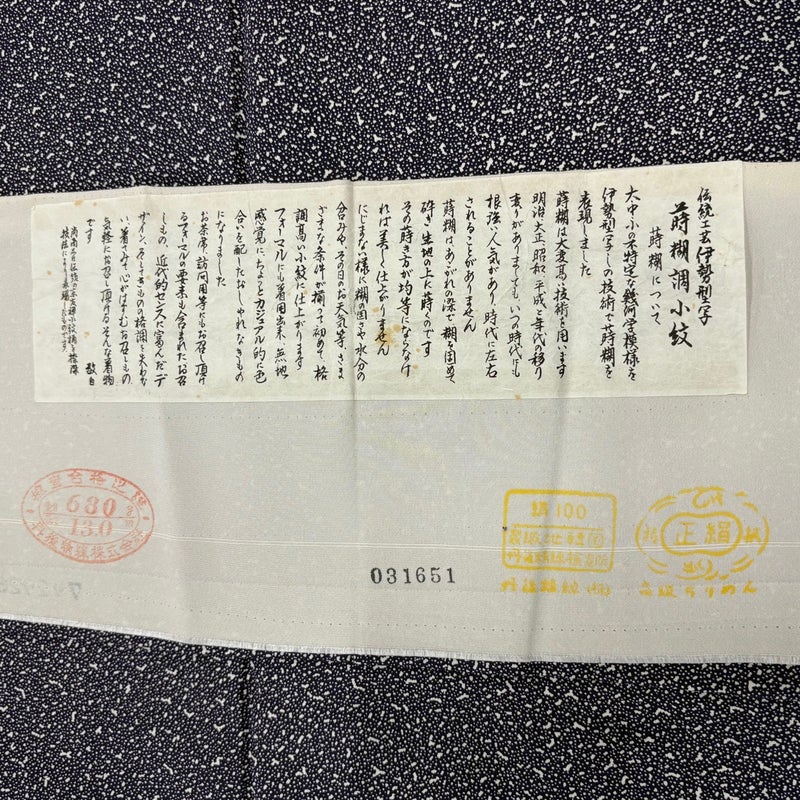 伝統工芸伊勢型写
蒔糊調小紋
蒔糊について
大中小の不特定な幾何学模様を
伊勢型写しの技術で蒔糊を
表現しました
蒔糊は大変高い技術を用います
明治大正、昭和、平成と年代の移り
変りがありましても、いつの時代でも
根強い人気があり、時代に左右
されることがありません
蒔糊はあこがれの染で糊を固めて
砕き生地の上に蒔くのです
その蒔き方が均等にならなけ
れば美しく仕上がりません
にじまない様に糊の固さや水分の
含みや、その日のお天気等、さま
ざまな条件が揃って初めて、格
調高い小紋に仕上がります
フォーマルにも着用出来、無地
感覚にちょっとカジュアル的に色
合いを配したおしゃれなきもの
になりました
お茶席、訪問用等にもお召し頂け
るフォーマルの要素も含まれたお召
しもの、近代的センスに富んだデ
ザイン、そしてきものの格調を失わな
い着てみて心がはずむお召しもの
気軽にお召し頂けるそんな着物
です
敬白
680
13.0
丹後織物
031651
絹100
丹後織物
正絹
高級ちりめん